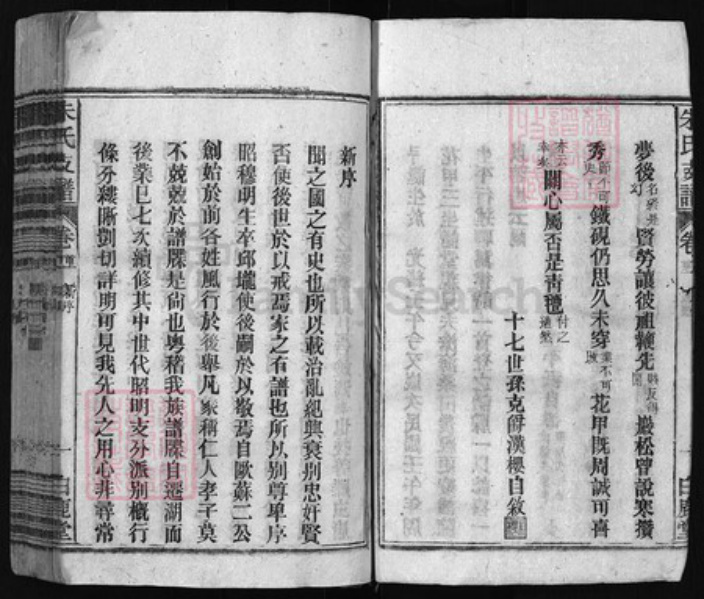 朱氏支譜
卷
夢後名列 賢勞讓彼祖鞭先 巖松曾說寒攢
秀 鐵硯仍思久未穿業不可 花甲既周誠可喜
亦云 關心屬否是靑氊付之
十七世孫克爵漢樓自敘
白鹿堂
新序
聞之國之有史也所以載治亂紀興衰別忠奸賢
否使後世於以戒焉家之有譜也所以別尊卑序
昭穆明生卒邱壠使後嗣於以敬焉自歐蘇二公
創始於前各姓風行於後舉凡家稱仁人孝子莫
不兢兢於譜牒是尙也粤稽我族譜牒自遷湖而
後業已七次續修其中世代昭明支分派別概行
條分縷晰剴切詳明可見我先人之用心非尋常
朱氏支譜
卷首
新序
一
白鹿堂
FamilySearch